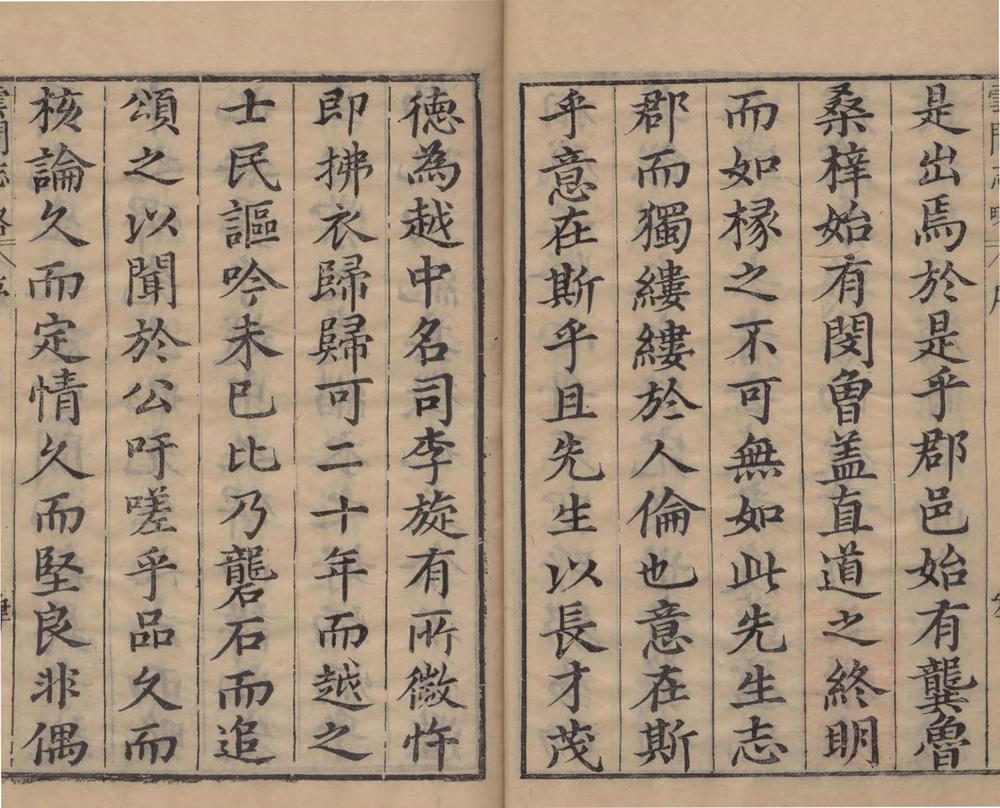 是出焉於是乎郡邑始有龔魯
桑梓始有閔曾盖直道之終明
而如椽之不可無如此先生志
郡而獨縷縷於人倫也意在斯
乎意在斯乎且先生以長才茂
德為越中名司李旋有所微忤
即拂衣歸歸可二十年而越之
士民謳吟未已比乃礱石而追
頌之以聞於公吁嗟乎品久而
核論久而定情久而堅良非偶
雲間志略